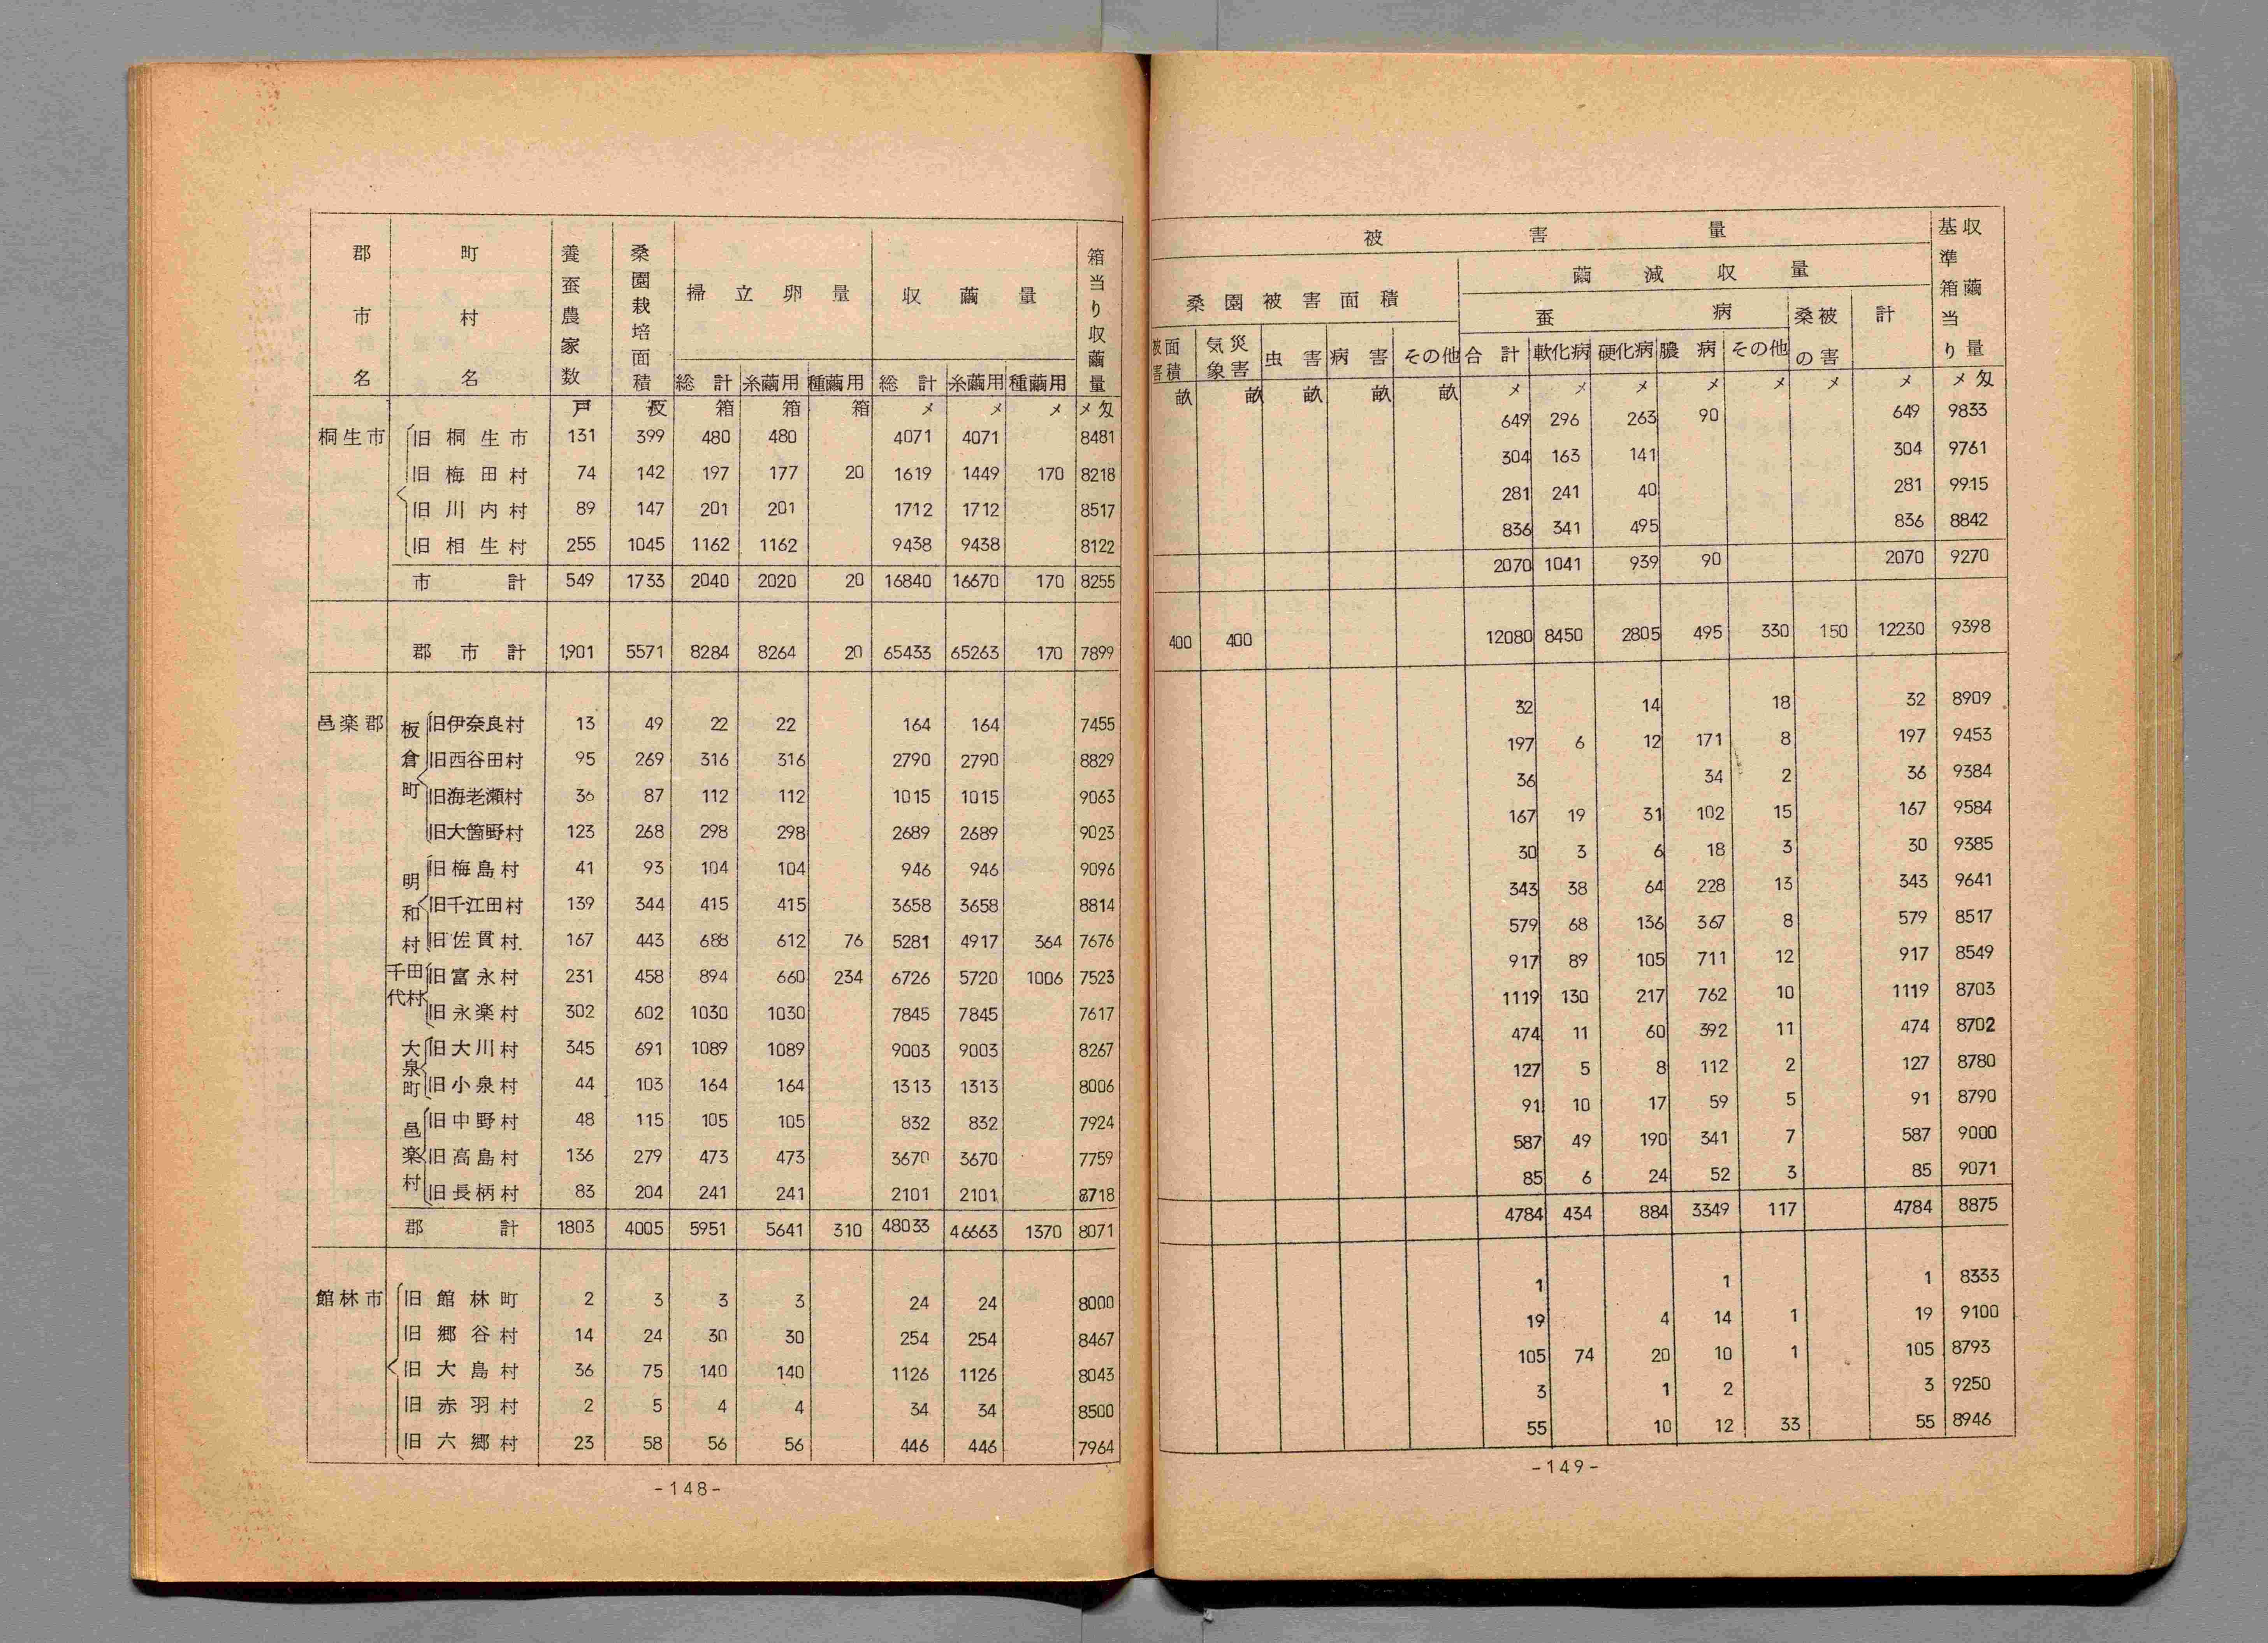 郡市名 町村名 養蚕農家数 桑園栽培面積 掃立卵量 収繭量 箱当り収繭量
総計 糸繭用 種繭用 総計 糸繭用 種繭用
戸 反 箱 箱 箱 メ メ メ メ匁
桐生市 旧桐生市 131 399 480 480 4071 4071 8481
旧梅田村 74 142 197 177 20 1619 1449 170 8218
旧川内村 89 147 201 201 1712 1712 8517
旧相生村 255 1045 1162 1162 9438 9438 8122
市計 549 1733 2040 2020 20 16840 16670 170 8255
郡市計 1,901 5571 8284 8264 20 65433 65263 170 7899
邑楽郡 板倉町 旧伊奈良村 13 49 22 22 164 164 7455
旧西谷田村 95 269 316 316 2790 2790 8829
旧海老瀬村 36 87 112 112 1015 1015 9063
旧大箇野村 123 268 298 298 2689 2689 9023
明和村 旧梅島村 41 93 104 104 946 946 9096
旧千江田村 139 344 415 415 3658 3658 8814
旧佐貫村 167 443 688 612 76 5281 4917 364 7676
千代田村 旧富永村 231 458 894 660 234 6726 5720 1006 7523
旧永楽村 302 602 1030 1030 7845 7845 7617
大泉町 旧大川村 345 691 1089 1089 9003 9003 8267
旧小泉村 44 103 164 164 1313 1313 8006
邑楽村 旧中野村 48 115 105 105 832 832 7924
旧高島村 136 279 473 473 3670 3670 7759
旧長柄村 83 204 241 241 2101 2101 8718
郡計 1803 4005 5951 5641 310 48033 46663 1370 8071
館林市 旧館林町 2 3 3 3 24 24 8000
旧郷谷村 14 24 30 30 254 254 8467
旧大島村 36 75 140 140 1126 1126 8043
旧赤羽村 2 5 4 4 34 34 8500
旧六郷村 23 58 56 56 446 446 7964
-148-
被害量 基準箱当り収繭量
桑園被害面積 繭減収量
蚕病 桑被の害 計
被害面積 気象災害 虫害 病害 その他 合計 軟化病 硬化病 膿病 その他
畝 畝 畝 畝 畝 メ メ メ メ メ メ メ メ匁
649 296 263 90 649 9833
304 163 141 304 9761
281 241 40 281 9915
836 341 495 836 8842
2070 1041 939 90 2070 9270
400 400 12080 8450 2805 495 330 150 12230 9398
32 14 18 32 8909
197 6 12 171 8 197 9453
36 34 2 36 9384
167 19 31 102 15 167 9584
30 3 6 18 3 30 9385
343 38 64 228 13 343 9641
579 68 136 367 8 579 8517
917 89 105 711 12 917 8549
1119 130 217 762 10 1119 8703
474 11 60 392 11 474 8702
127 5 8 112 2 127 8780
91 10 17 59 5 91 8790
587 49 190 341 7 587 9000
85 6 24 52 3 85 9071
4784 434 884 3349 117 4784 8875
1 1 1 8333
19 4 14 1 19 9100
105 74 20 10 1 105 8793
3 1 2 3 9250
55 10 12 33 55 8946
-149-